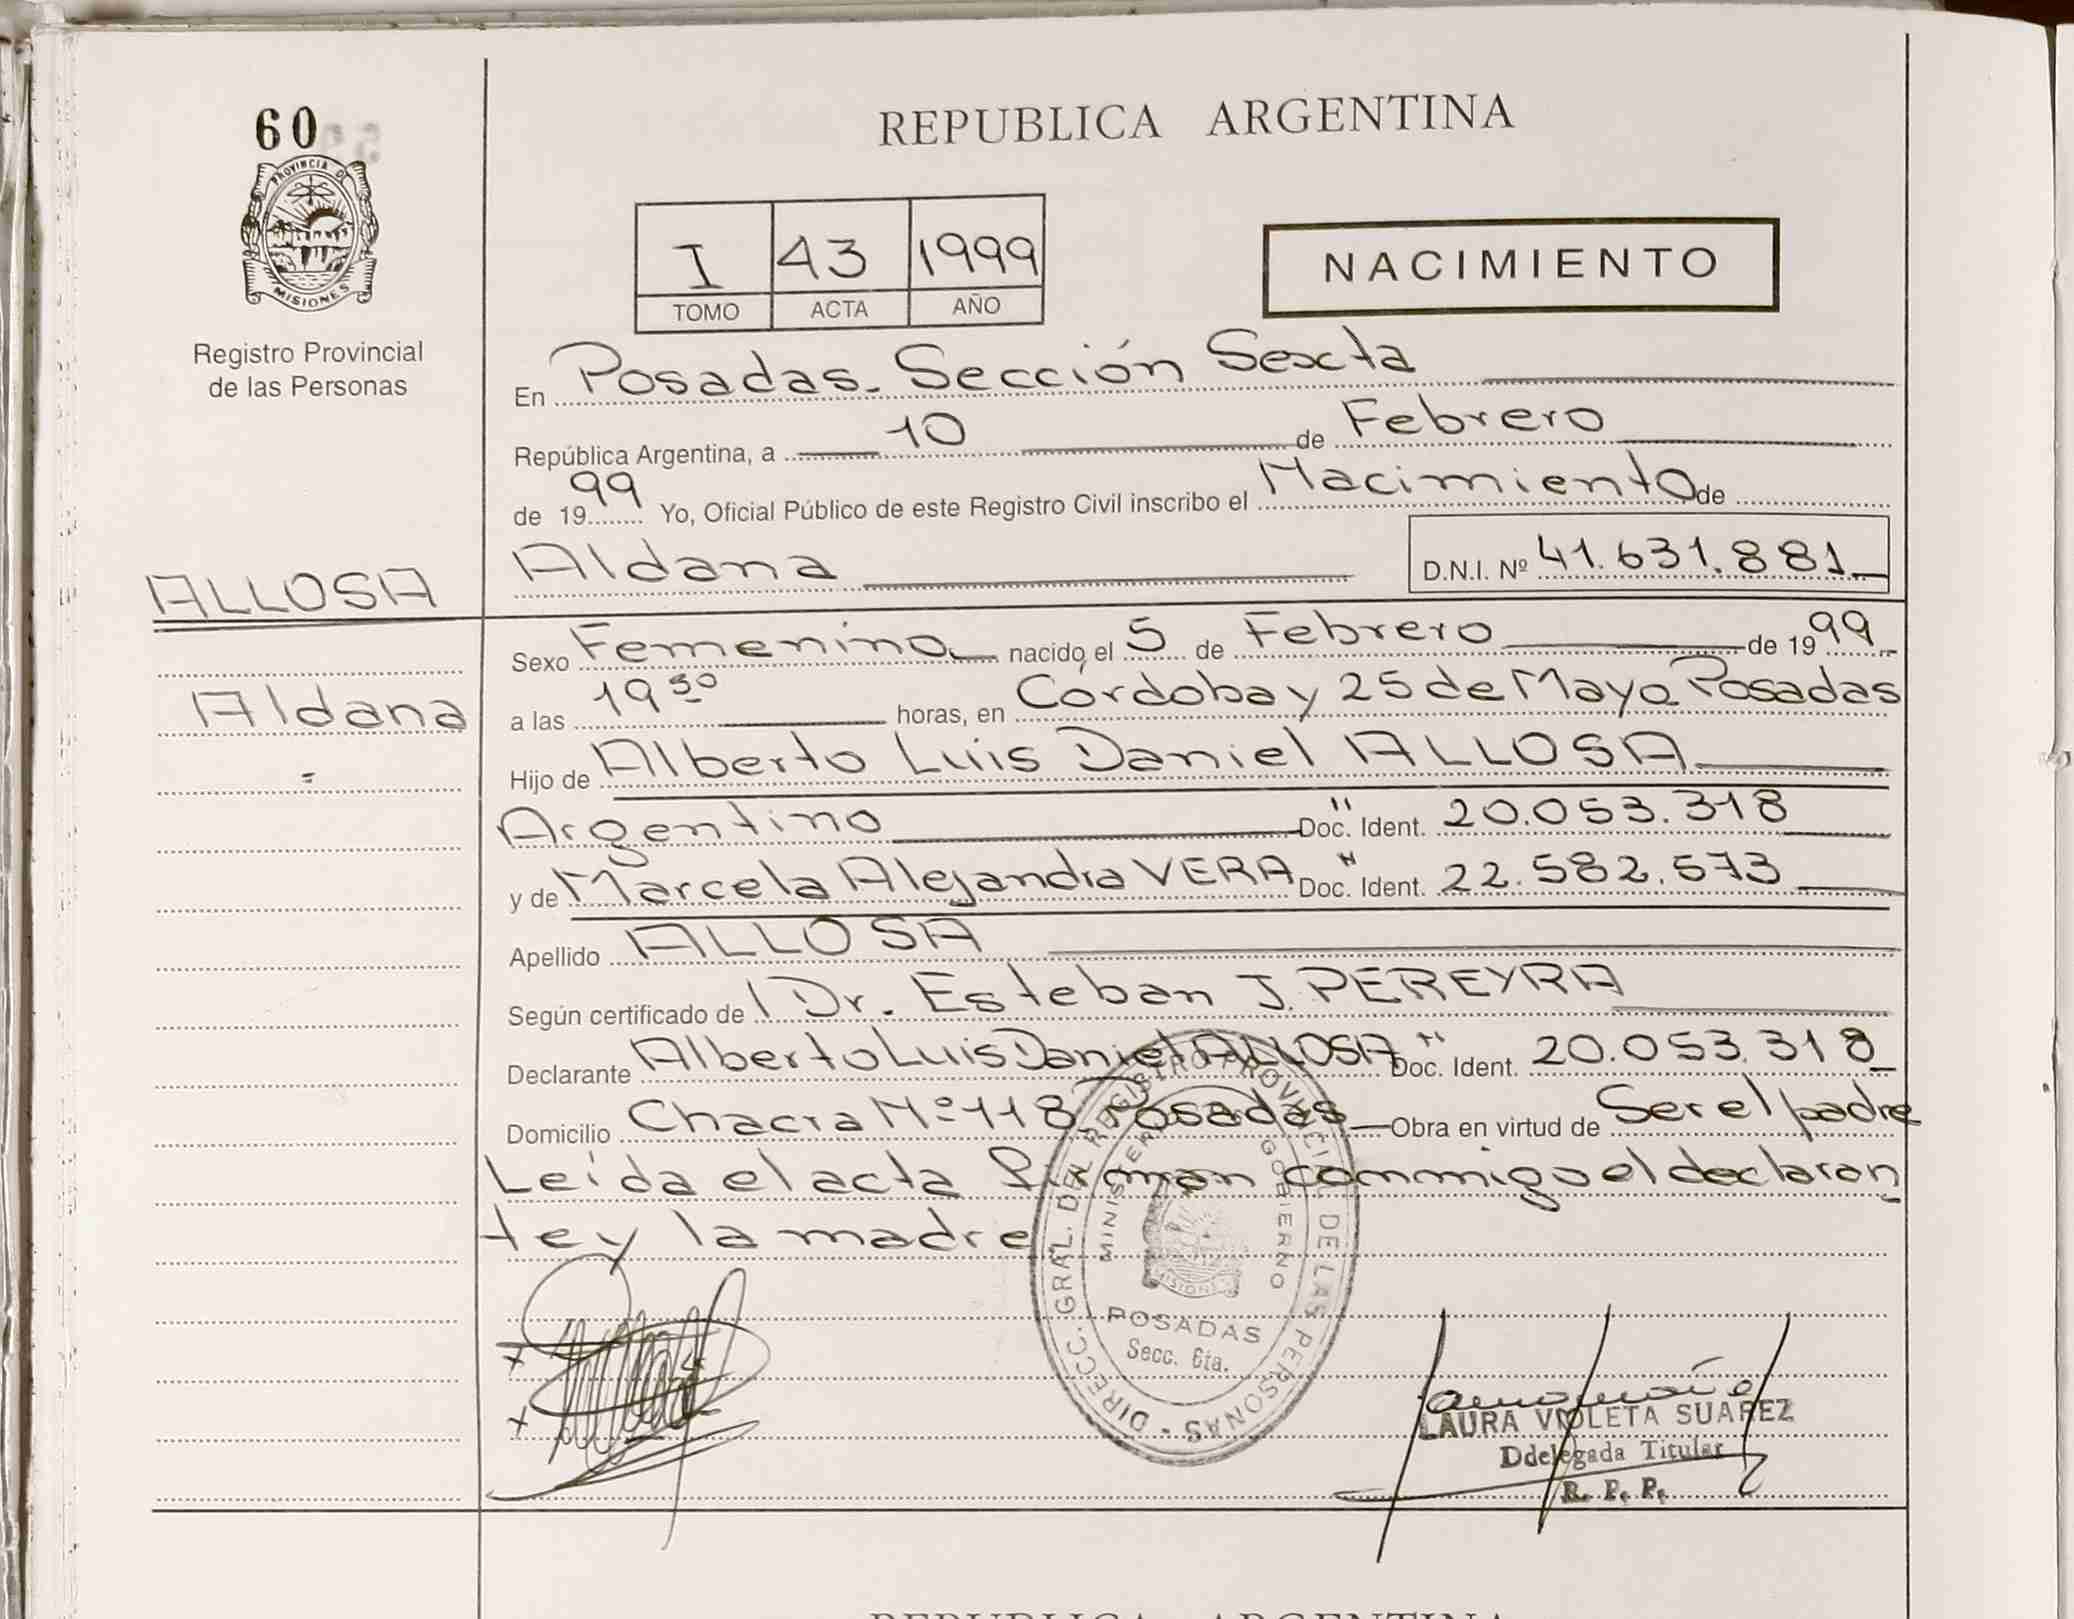 60
PROVINCIA DE
MISIONES
Registro Provincial
de las Personas
REPUBLICA ARGENTINA
I 43 1999
TOMO ACTA AÑO
NACIMIENTO
En Posadas. Sección Sexta
República Argentina, a 10 de Febrero
de 1999 Yo, Oficial Público de este Registro Civil inscribo el Nacimiento de
ALLOSA
Aldana D.N.I. Nº 41.631.881
Sexo Femenino nacido el 5 de Febrero de 1999
Aldana
a las 19 30 horas, en Córdoba y 25 de Mayo Posadas
Hijo de Alberto Luis Daniel ALLOSA
Argentino Doc. Ident. 20.053.318
y de Marcela Alejandra VERA Doc. Ident. 22.582.573
Apellido ALLOSA
Según certificado de Dr. Esteban J. PEREYRA
Declarante Alberto Luis Daniel ALLOSA Doc. Ident. 20.053.318
Domicilio Chacra Nº 118 Posadas Obra en virtud de Ser el padre
Leída el acta firman conmigo el declaran
te y la madre
DIRECC. GRAL. DEL REGISTRO PROVINCIAL DE LAS PERSONAS -
MINISTERIO GOBIERNO
MISIONES
POSADAS
Secc. 6ta.
LAURA VIOLETA SUAREZ
Ddelegada Titular
R. P. P.
REPUBLICA ARGENTINA